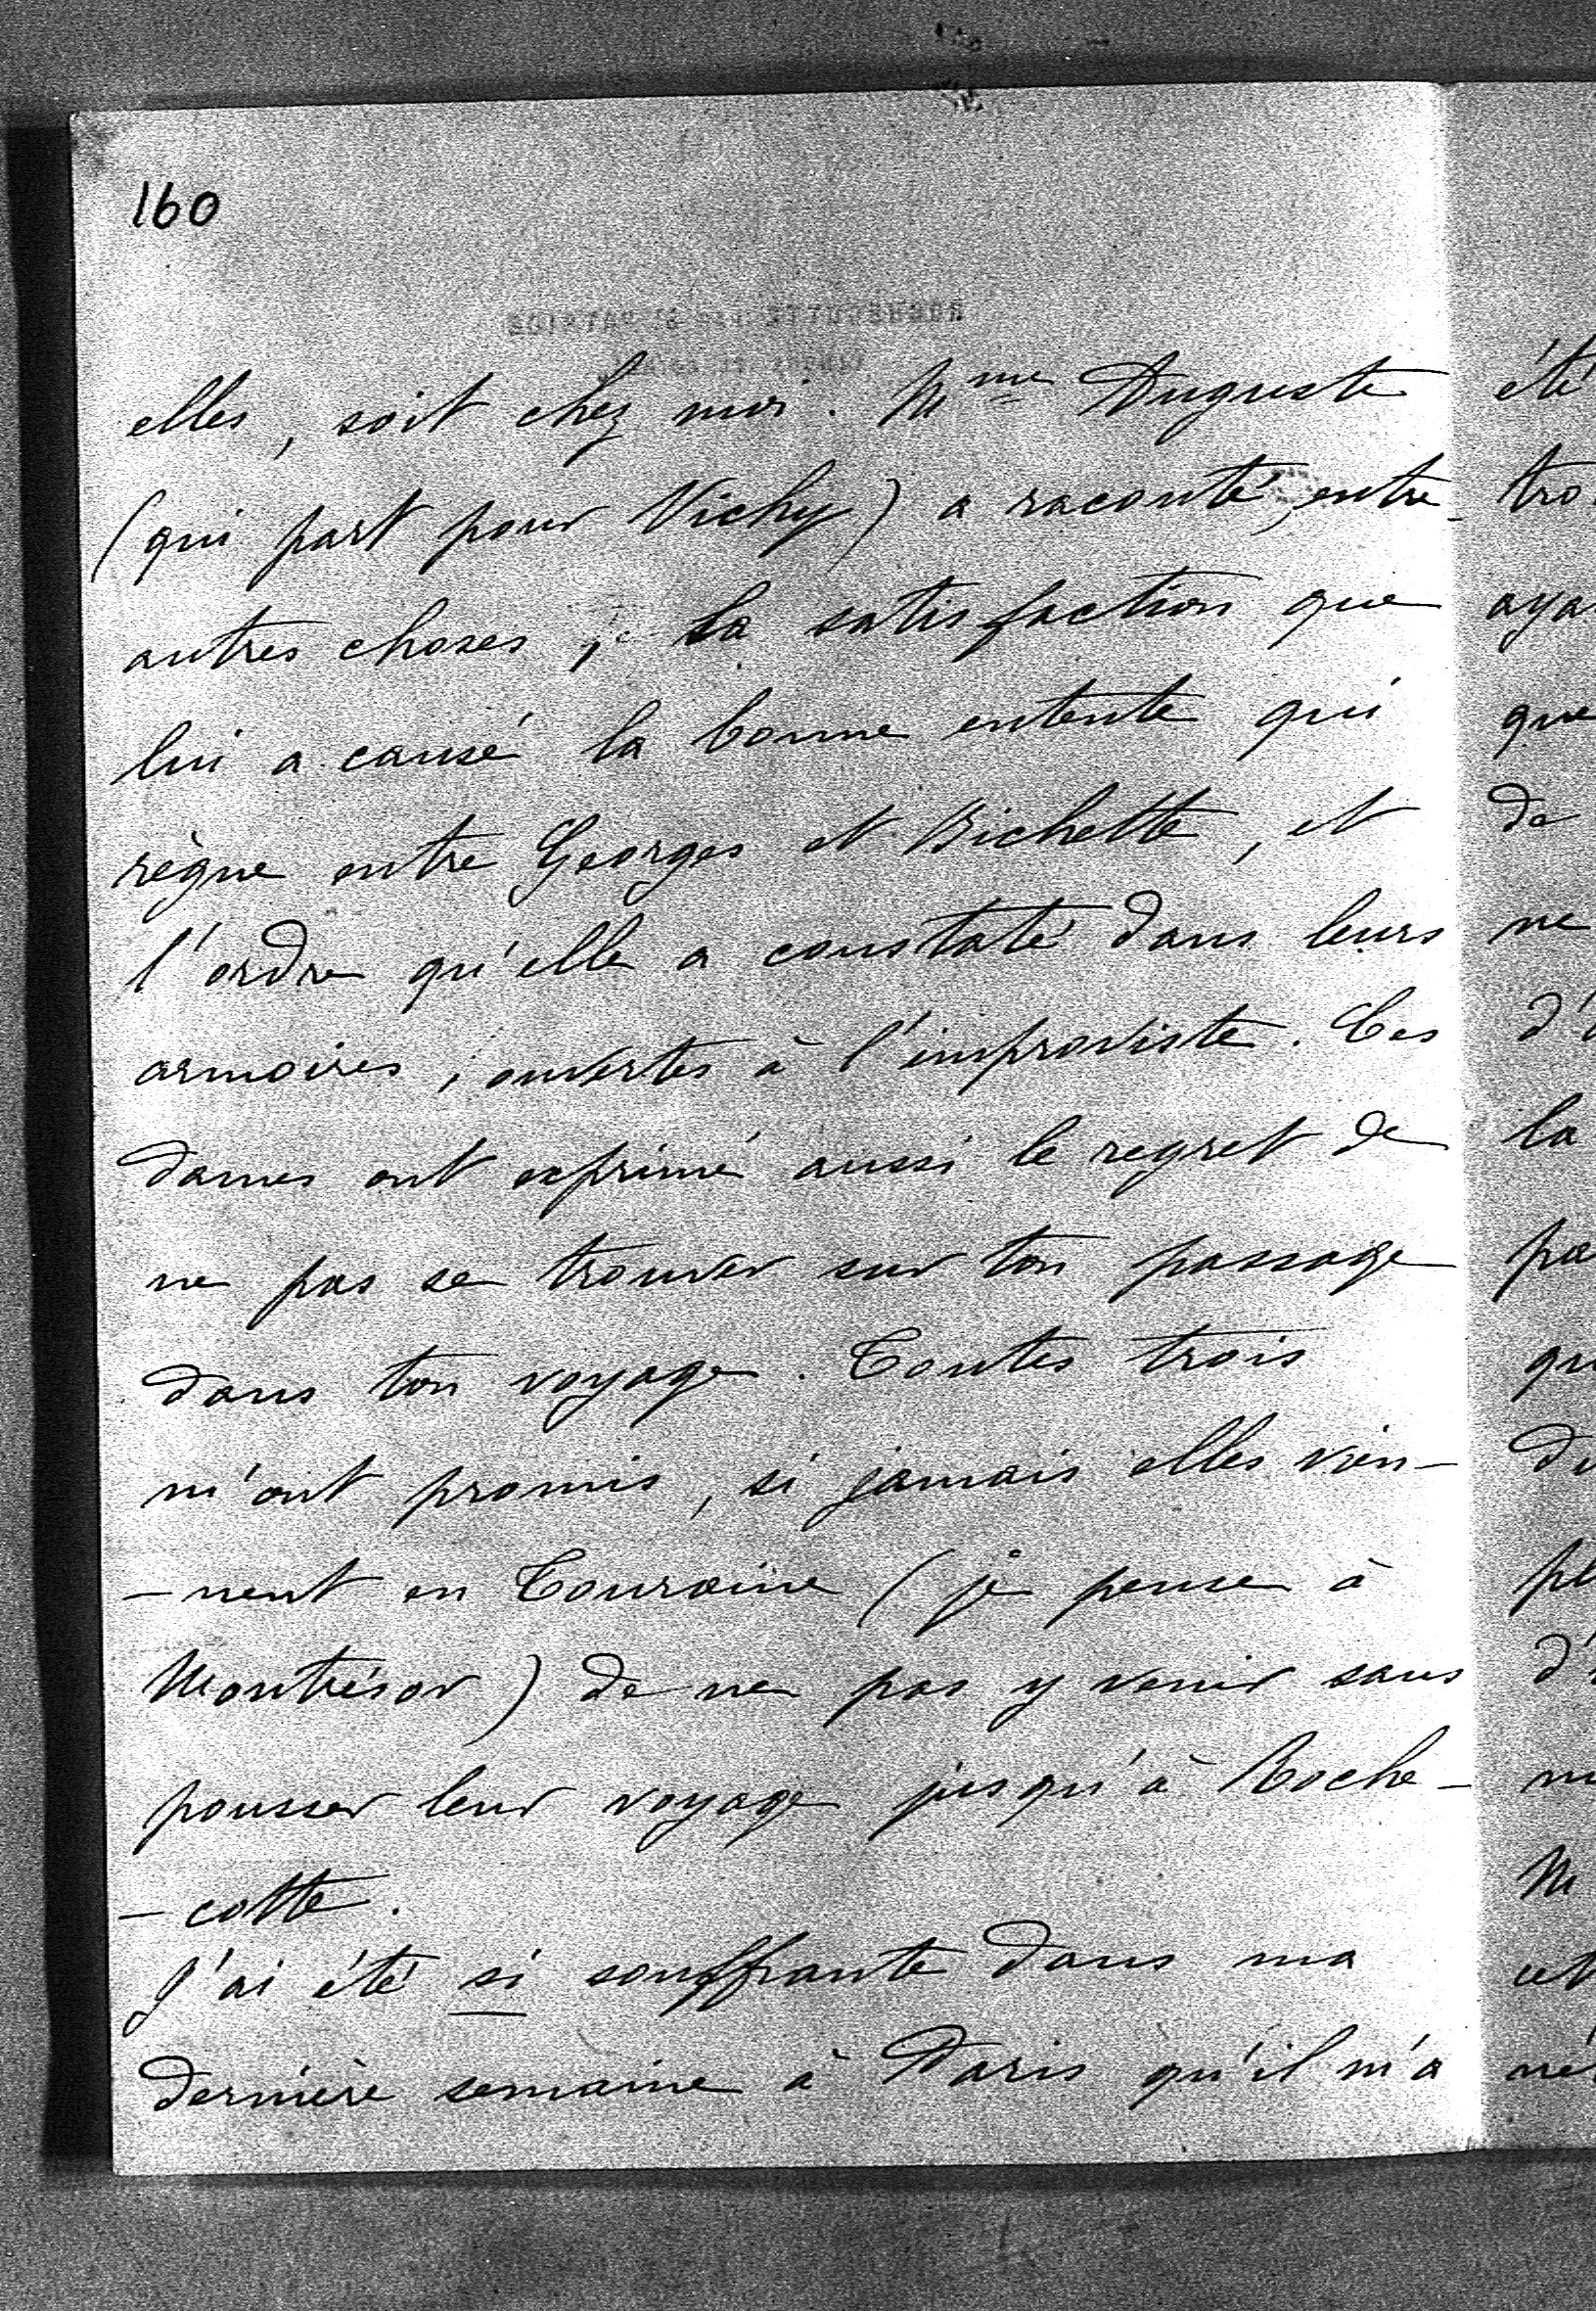 160
elles, soit chez moi. Mme Auguste
(qui part pour Vichy) a raconté, entre
autres choses, la satisfaction que
lui a causé la bonne entente qui
règne entre Georges et Bichette, et
l'ordre qu'elle a constaté dans leurs
armoires, ouvertes à l'improviste. Ces
dames ont exprimé aussi le regret de
ne pas se trouver sur ton passage
dans ton voyage. Toutes trois
m'ont promis, si jamais elles vien-
-nent en Touraine (je pense à
Montrésor) de ne pas y venir sans
pousser leur voyage jusqu'à Roche-
-cotte.
J'ai été si souffrante dans ma
dernière semaine à Paris qu'il m'a
été
tro
aya
que
de
ne
d'
la
pa
qu
du
pl
d'
m
M
cet
né